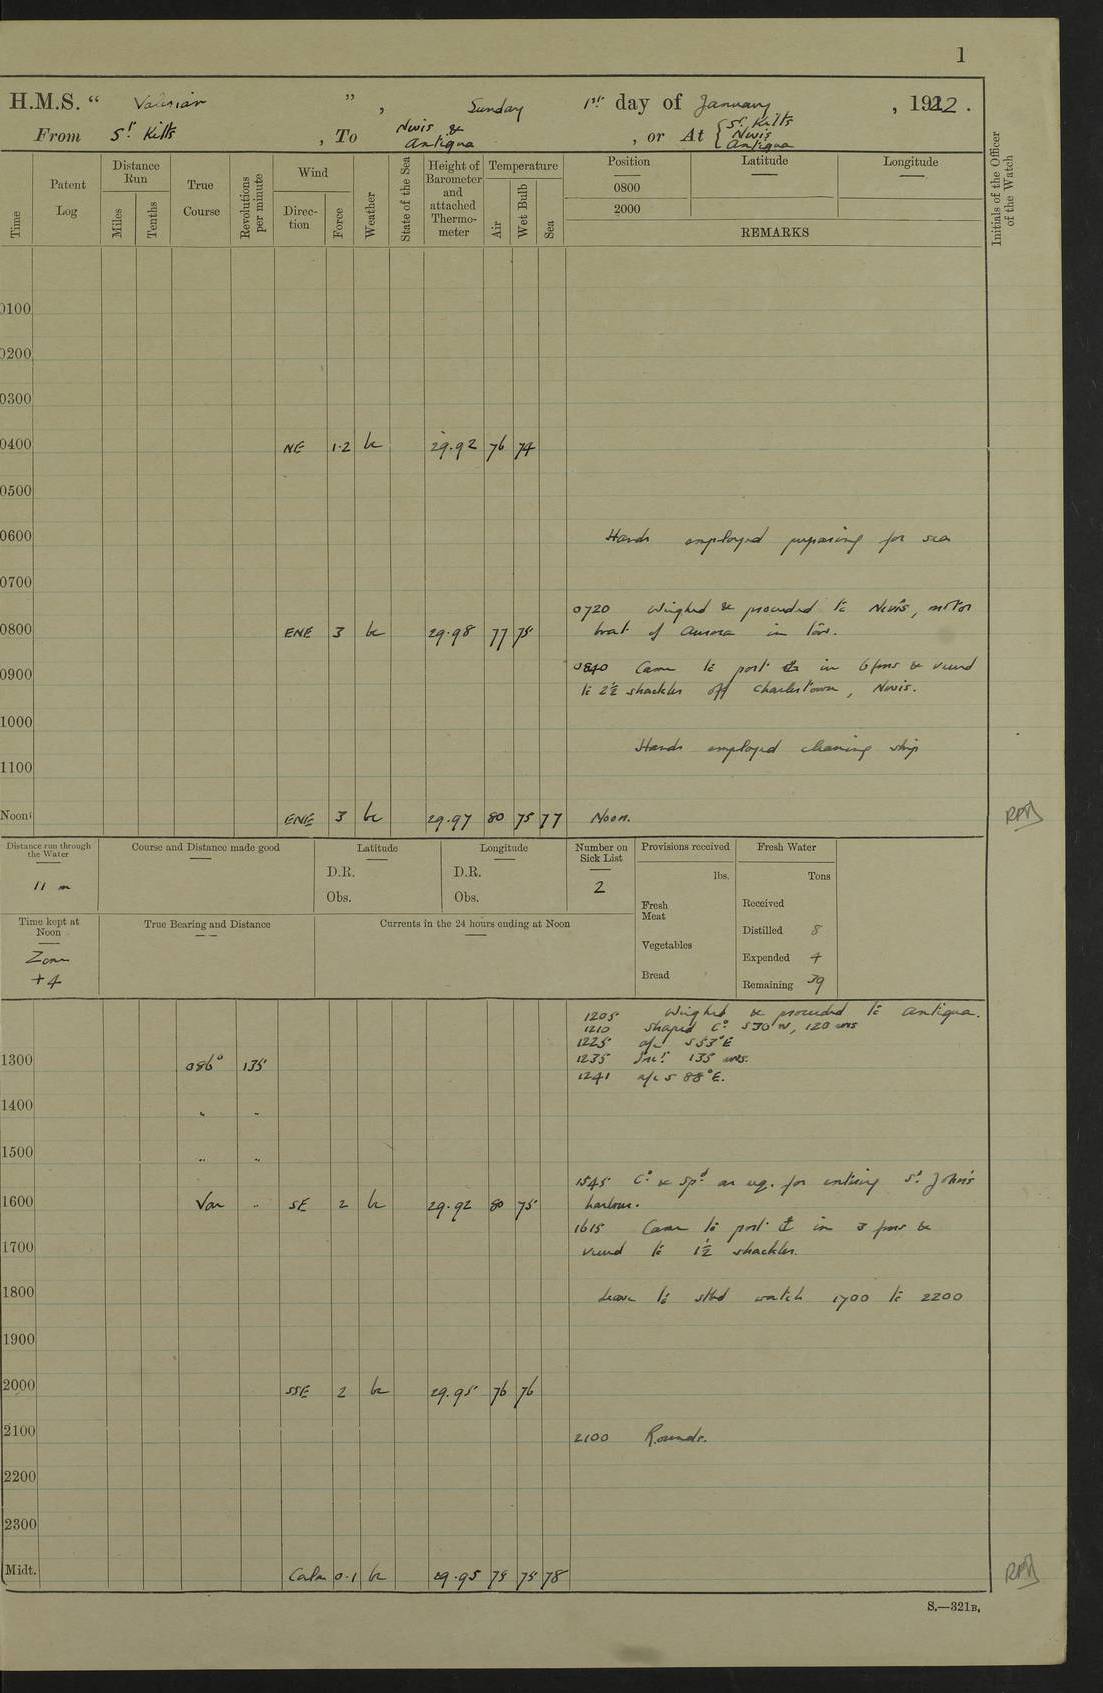 1
H.M.S. “ Valerian ” , Sunday 1st day of January , 1922 .
From St Kitts , To Nevis & Antigua , or At { St Kitts Nevis Antigua
Time
Patent Log
Distance Run
Miles
Tenths
True Course
Revolutions per minute
Wind
Direction
Force
Weather
State of the Sea
Height of Barometer and attached Thermometer
Temperature
Air
Wet Bulb
Sea
Position
Latitude
Longitude
0800
2000
REMARKS
Initials of the Officer of the Watch
0100
0200
0300
0400 NE 1·2 bc 29.92 76 74
0500
0600 Hands employed preparing for sea
0700
0720 Weighed & proceeded to Nevis, motor
0800 ENE 3 bc 29.98 77 75 boat of Aurora in tow.
0840 Came to port ⚓ in 6 fms & veered
0900
to 2½ shackles off Charlestown, Nevis.
1000
Hands employed cleaning ship
1100
Noon ENE 3 bc 29.97 80 75 77 Noon. RPB
Distance run through the Water
11 m
Course and Distance made good
Latitude
D.R.
Obs.
Longitude
D.R.
Obs.
Number on Sick List
2
Provisions received
lbs.
Fresh Meat
Vegetables
Bread
Fresh Water
Tons
Received
Distilled 8
Expended 4
Remaining 39
Time kept at Noon
Zone
+4
True Bearing and Distance
Currents in the 24 hours ending at Noon
1205 Weighed & proceeded to Antigua.
1210 Shaped Co S30°W, 120 revs
1225 a/c S53°E
1235 Incd 135 revs.
1300 086° 135
1241 a/c S 88°E.
1400 " "
1500 " "
1545 Co & Spd as req. for entering St John's
1600 Var " SE 2 bc 29.92 80 75 harbour.
1615 Came to port ⚓ in 3 fms &
1700 veered to 1½ shackles.
1800 Leave to stbd watch 1700 to 2200
1900
2000 SSE 2 bc 29.95 76 76
2100 2100 Rounds.
2200
2300
Midt. Calm 0·1 bc 29.95 75 75 78 RPB
S.—321B.